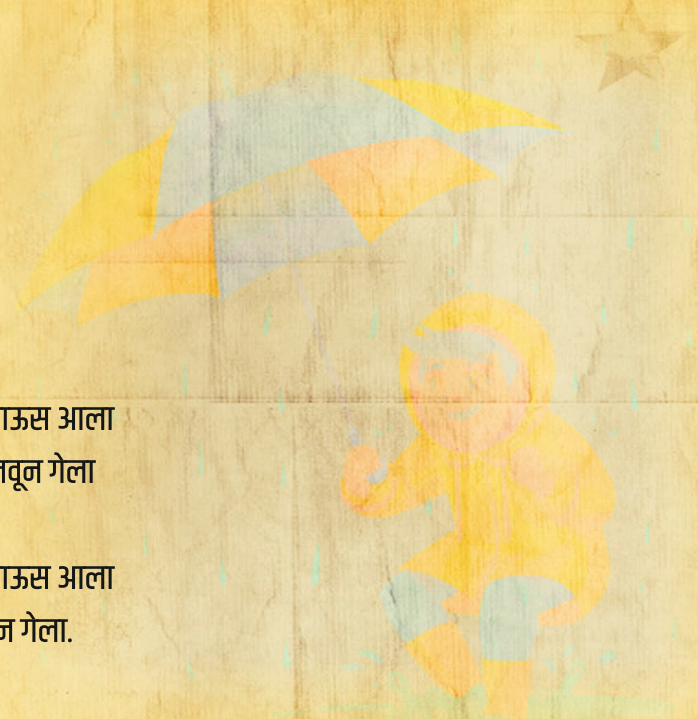 ाऊस आला
वून गेला
ाऊस आला
न गेला.